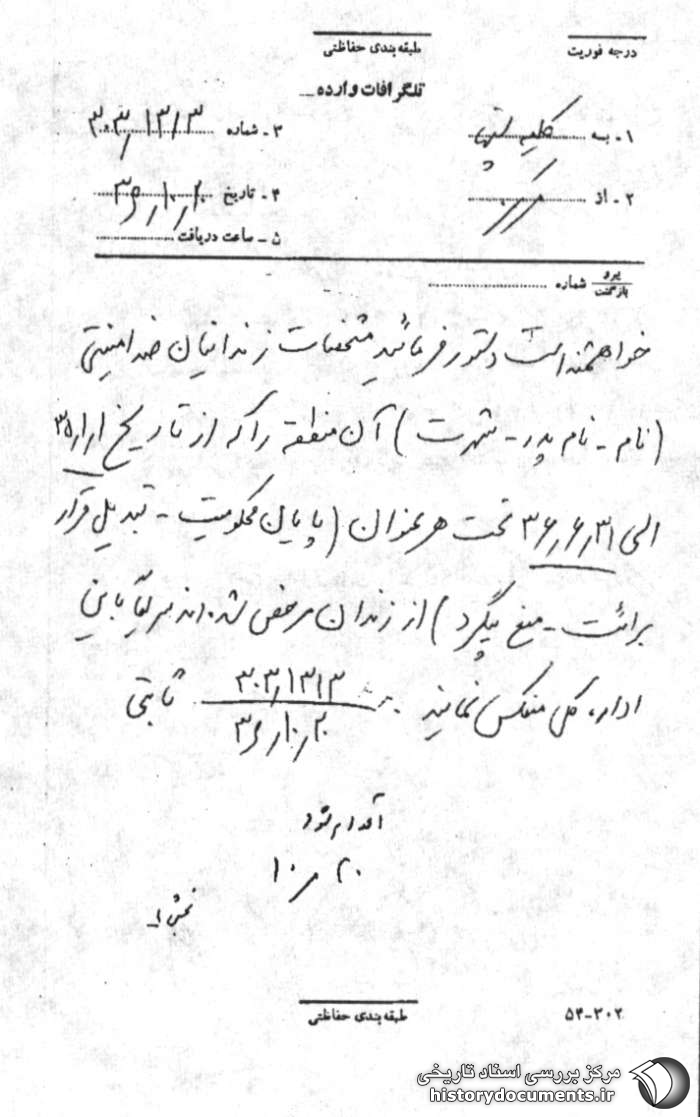 طبقه‌بندی حفاظتی
درجه فوریت
تلگرافات وارده
۱ - به کلیه
۳ - شماره ۳۰۳/۱۳۱۳
۲ - از مرکز
۴ - تاریخ ۳۶/۱۰/۲۰
۵ - ساعت دریافت
پیرو
بازگشت
شماره
خواهشمند است دستور فرمائید مشخصات زندانیان ضد امنیتی
(نام - نام پدر - شهرت) آن منطقه را که از تاریخ ۳۵/۱/۱
الی ۳۶/۶/۳۱ تحت هر عنوان (پایان محکومیت - تبدیل قرار
برائت - منع پیگرد) از زندان مرخص شده‌اند سریعاً باین
اداره کل منعکس نمایند ۳۰۳/۱۳۱۳ ثابتی
۳۶/۱۰/۲۰
اقدام شود
۲۰ ر ۱۰
طبقه‌بندی حفاظتی
۵۴-۲۰۲
مرکز بررسی اسناد تاریخی
historydocuments.ir